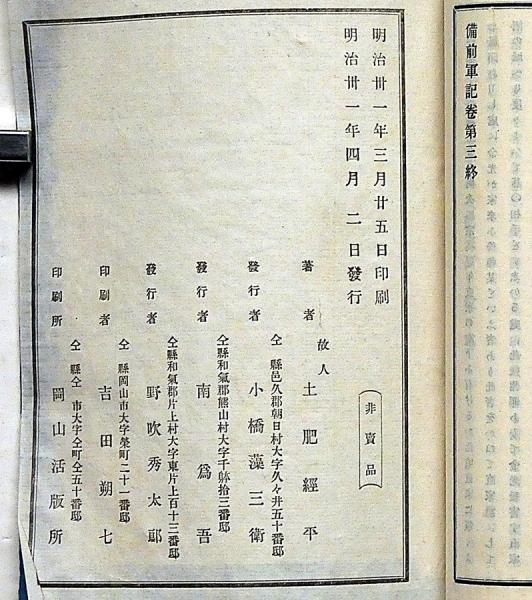 備前軍記卷第三終
明治卅一年三月廿五日印刷
明治卅一年四月二日發行
（非賣品）
著者 故人 土肥經平
仝縣邑久郡朝日村大字久々井五十番邸
發行者 小橋藻三衛
仝縣和氣郡熊山村大字千躰拾三番邸
發行者 南爲吾
仝縣和氣郡片上村大字東片上百十三番邸
發行者 野吹秀太郎
仝縣岡山市大字榮町二十一番邸
印刷者 吉田朔七
仝縣仝市大字仝町仝五十番邸
印刷所 岡山活版所